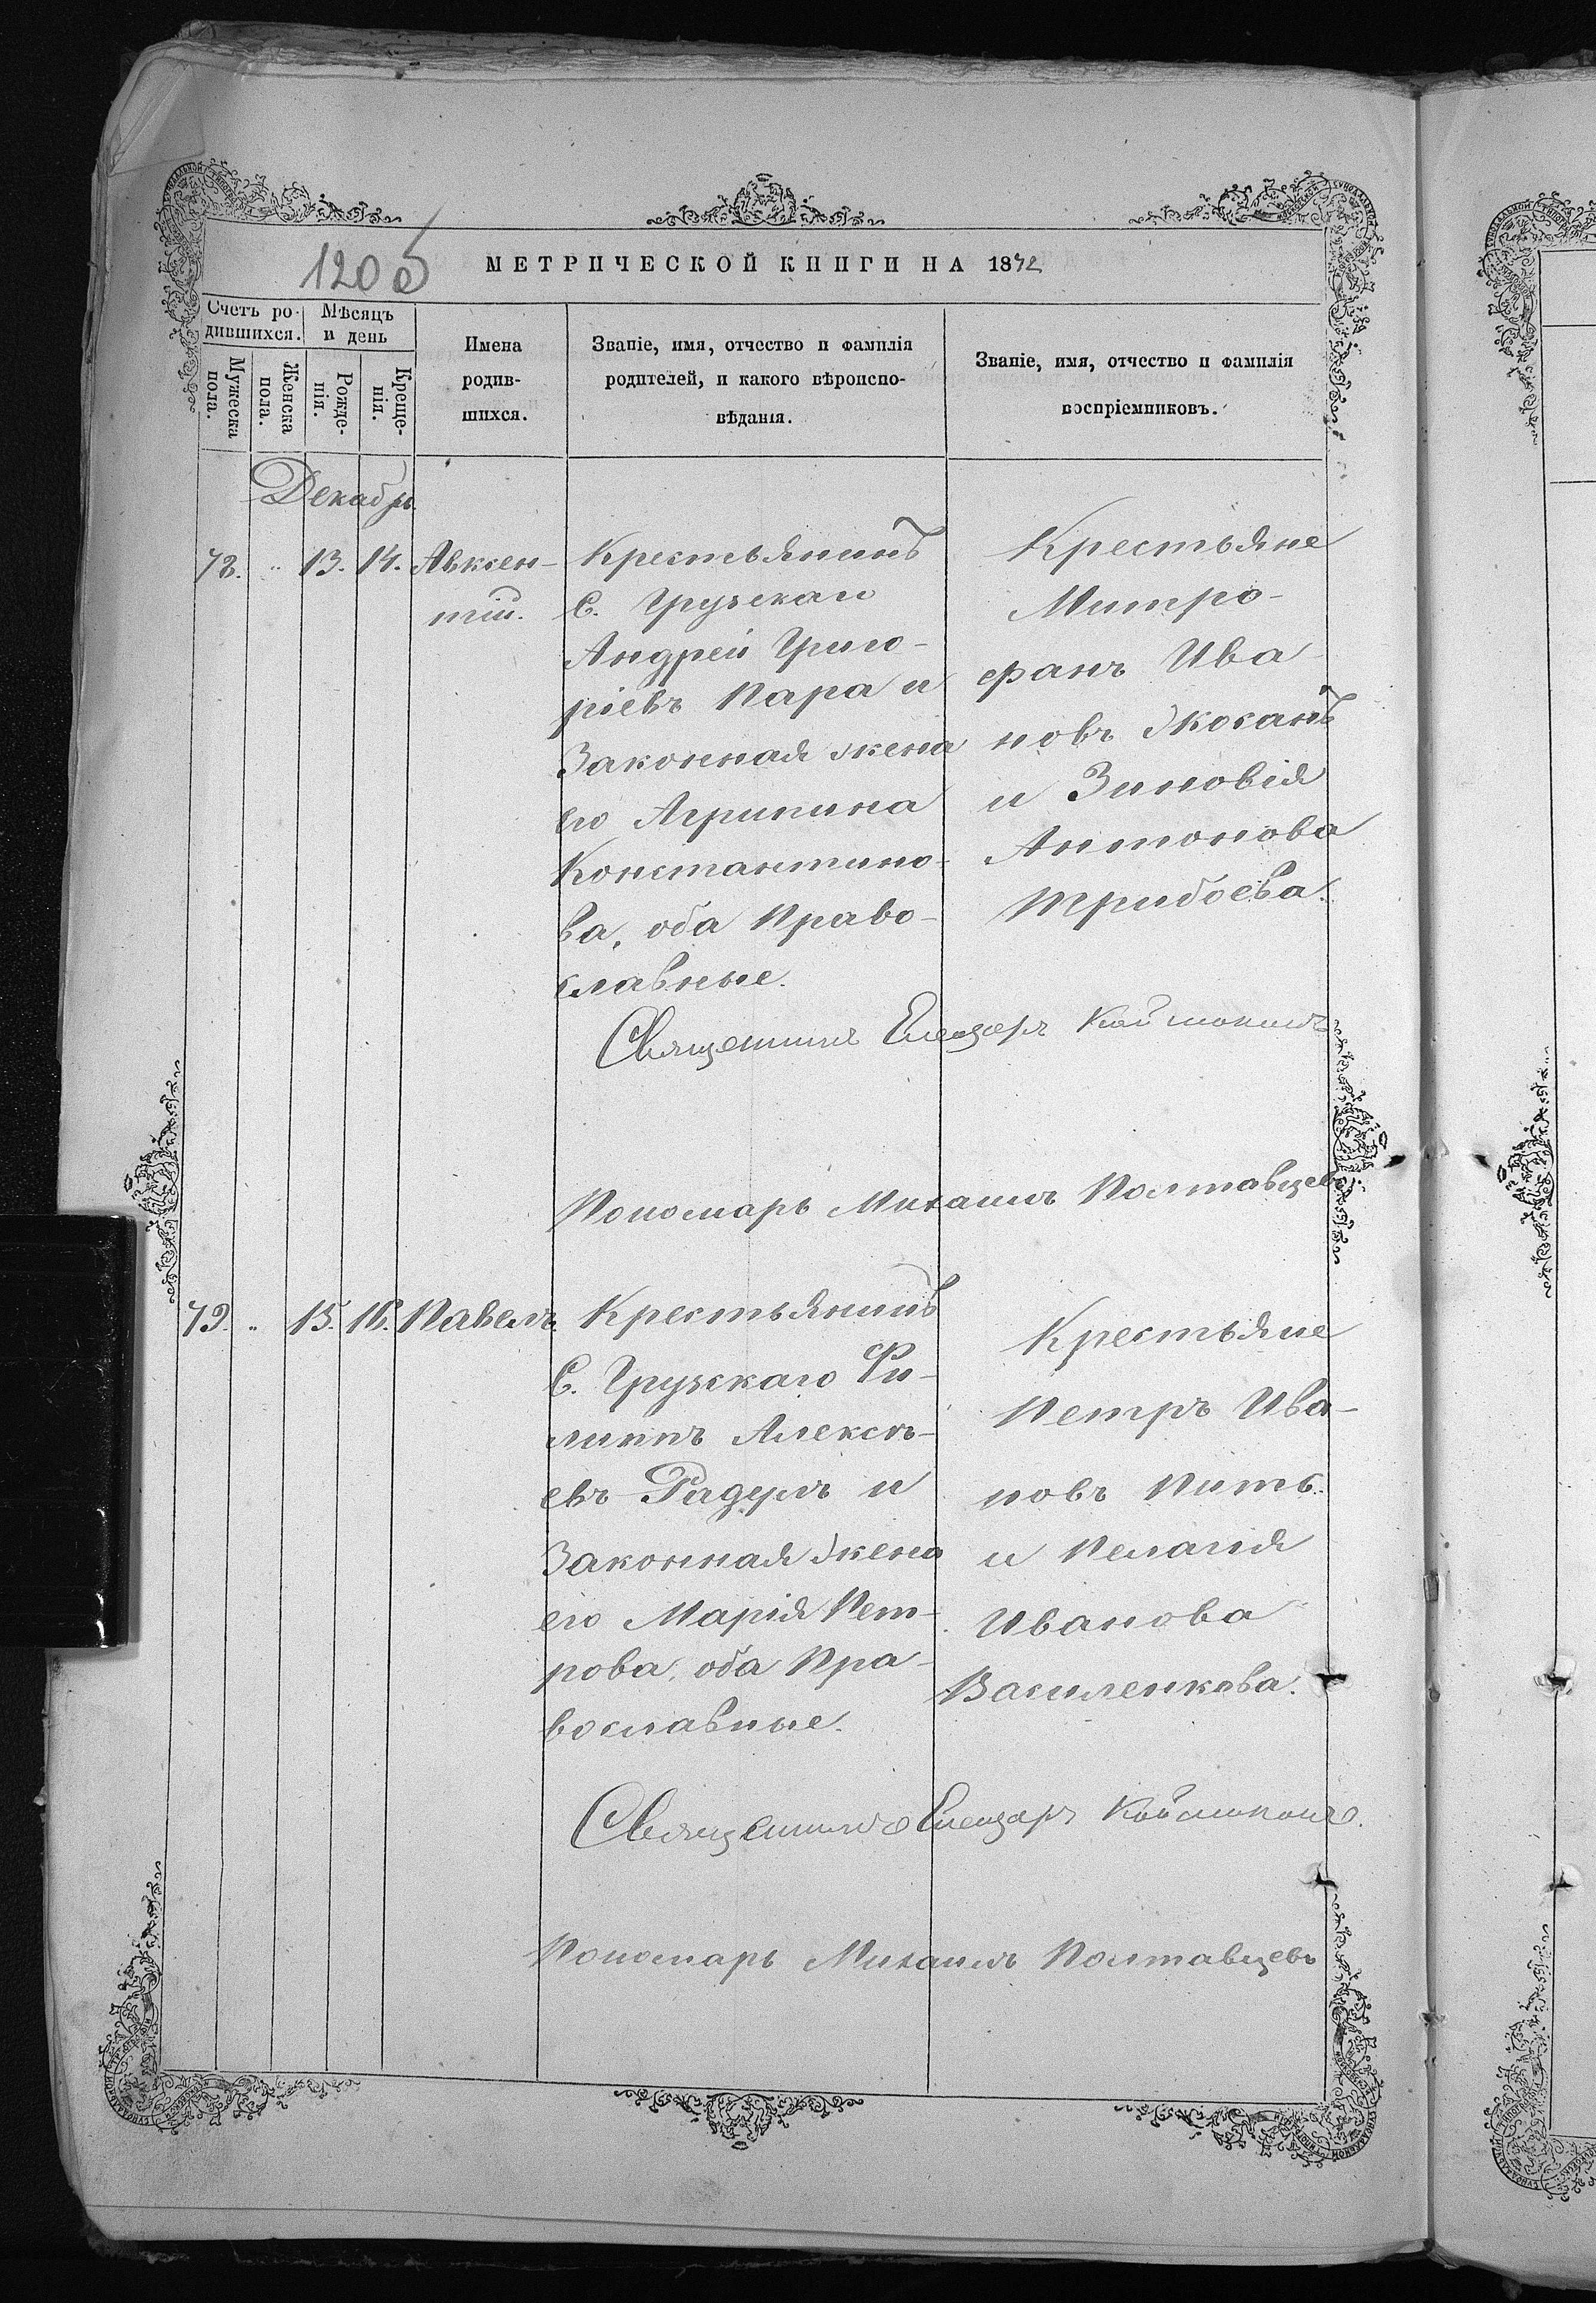 120об
МЕТРИЧЕСКОЙ КНИГИ НА 1872
Счетъ ро-
дившихся.
Мѣсяцъ
и день
Мужеска
пола.
Женска
пола.
Рожде-
нія.
Креще-
нія.
Имена
родив-
шихся.
Званіе, имя, отчество и фамилія
родителей, и какого вѣроиспо-
вѣданія.
Званіе, имя, отчество и фамилія
воспріемниковъ.
Декабрь
78. " 13. 14. Авксен-
тій.
Крестьянинъ
С. Грузскаго
Андрей Григо-
ріевъ Пара и
Законная жена
его Агрипина
Константино-
ва, оба Право-
славные.
Крестьяне
Митро-
фанъ Ива-
новъ Жосанъ
и Зиновія
Антонова
Трибоева.
Священникъ Елеазаръ
Пономарь Михаилъ Полтавцевъ
79. " 15. 16. Павелъ.
Крестьянинъ
С. Грузскаго Фи-
липпъ Алексѣ-
евъ Радулъ и
Законная жена
его Марія Пет-
рова, оба Пра-
вославные.
Крестьяне
Петръ Ива-
новъ Пить.
и Пелагія
Иванова
Василенкова.
Священникъ Елеазаръ
Пономарь Михаилъ Полтавцевъ